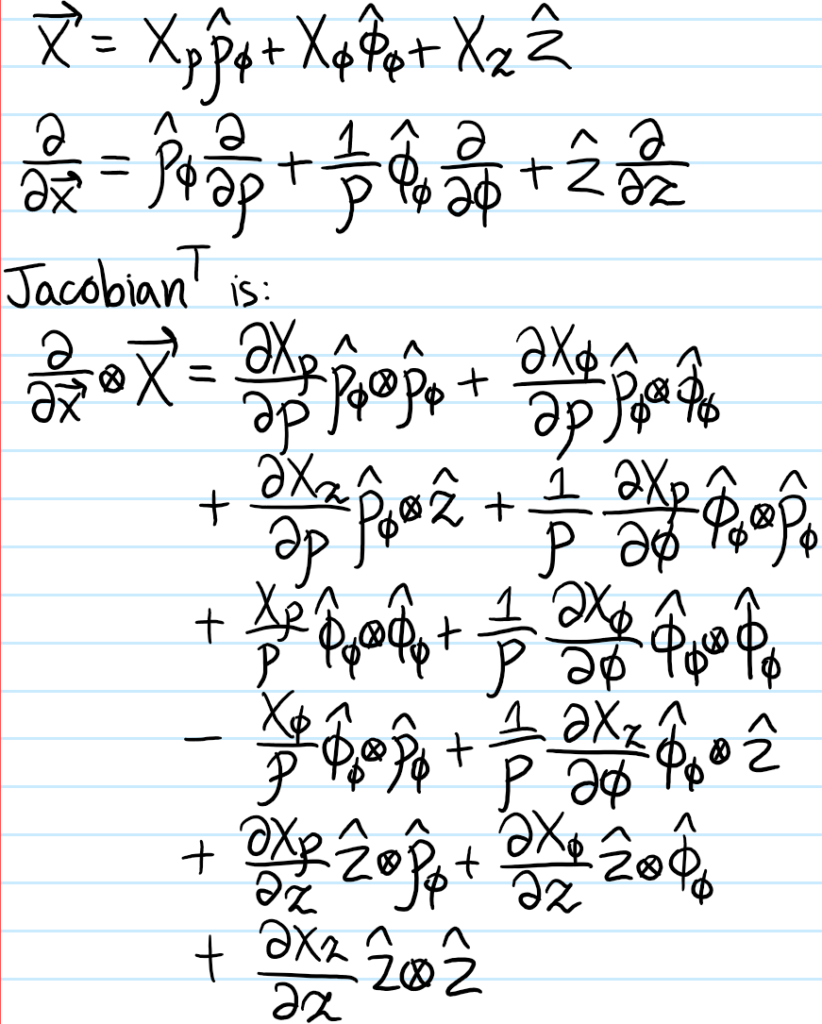 $\vec{X} = X_\rho \hat{\rho}_\phi + X_\phi \hat{\phi}_\phi + X_z \hat{z}$
$\frac{\partial}{\partial \vec{x}} = \hat{\rho}_\phi \frac{\partial}{\partial \rho} + \frac{1}{\rho} \hat{\phi}_\phi \frac{\partial}{\partial \phi} + \hat{z} \frac{\partial}{\partial z}$
Jacobian$^T$ is:
$\frac{\partial}{\partial \vec{x}} \otimes \vec{X} = \frac{\partial X_\rho}{\partial \rho} \hat{\rho}_\phi \otimes \hat{\rho}_\phi + \frac{\partial X_\phi}{\partial \rho} \hat{\rho}_\phi \otimes \hat{\phi}_\phi$
$+ \frac{\partial X_z}{\partial \rho} \hat{\rho}_\phi \otimes \hat{z} + \frac{1}{\rho} \frac{\partial X_\rho}{\partial \phi} \hat{\phi}_\phi \otimes \hat{\rho}_\phi$
$+ \frac{X_\rho}{\rho} \hat{\phi}_\phi \otimes \hat{\phi}_\phi + \frac{1}{\rho} \frac{\partial X_\phi}{\partial \phi} \hat{\phi}_\phi \otimes \hat{\phi}_\phi$
$- \frac{X_\phi}{\rho} \hat{\phi}_\phi \otimes \hat{\rho}_\phi + \frac{1}{\rho} \frac{\partial X_z}{\partial \phi} \hat{\phi}_\phi \otimes \hat{z}$
$+ \frac{\partial X_\rho}{\partial z} \hat{z} \otimes \hat{\rho}_\phi + \frac{\partial X_\phi}{\partial z} \hat{z} \otimes \hat{\phi}_\phi$
$+ \frac{\partial X_z}{\partial z} \hat{z} \otimes \hat{z}$